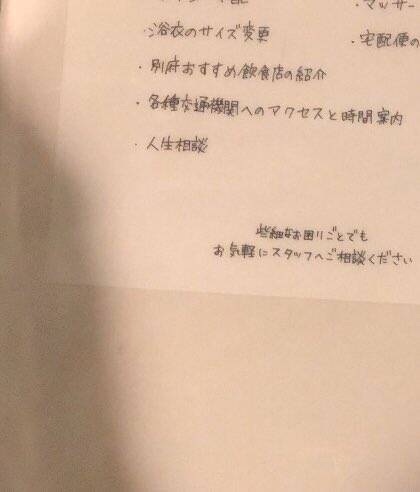 ・マッサー
・浴衣のサイズ変更
・宅配便の
・別府おすすめ飲食店の紹介
・各種交通機関へのアクセスと時間案内
・人生相談
些細なお困りごとでも
お気軽にスタッフへご相談ください